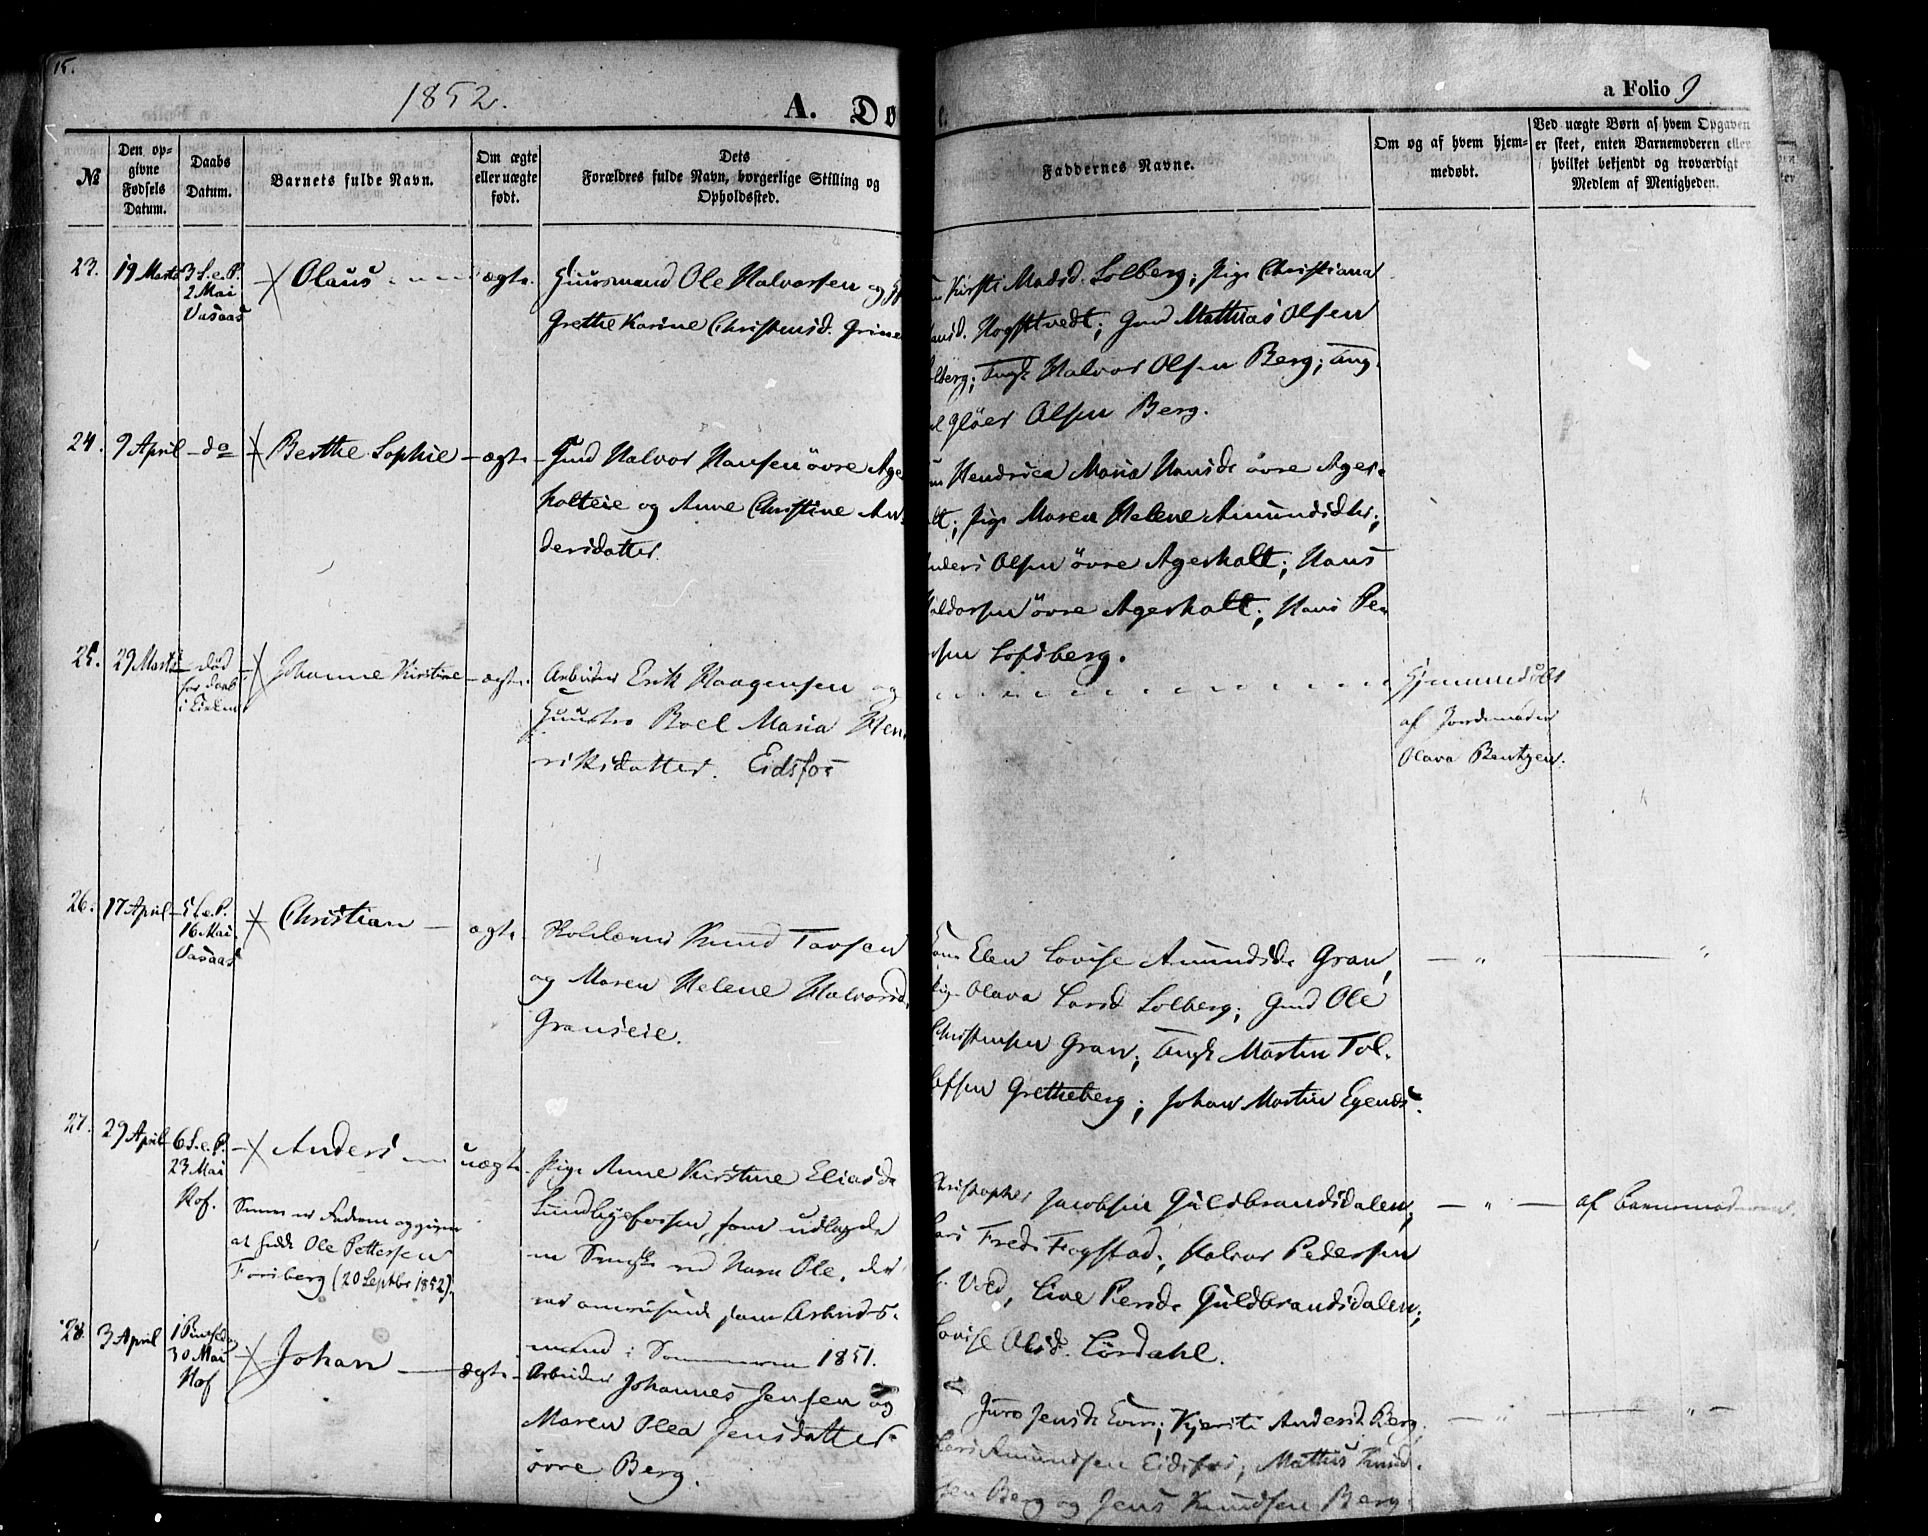 15.
1852.
A. Dø
a Folio 9
№
Den op-
givne
Fødsels
Datum.
Daabs
Datum.
Barnets fulde Navn.
Om ægte
eller uægte
født.
Dets
Forældres fulde Navn, borgerlige Stilling og
Opholdssted.
Faddernes Navne.
Om og af hvem hjem-
medøbt.
Ved uægte Børn af hvem Opgaven
er skeet, enten Barnemoderen eller
hvilket bekjendt og troværdigt
Medlem af Menigheden.
23. 19 Marts 3 S. e. P.
2 Mai
Vasaas
Olaus ægte
Huusmand Ole Halvorsen og
Grethe Karine Christensd. Grine
Kirsti Madsd. Solberg; Pige Christiana
Hansd. Hogstvedt; Gmd Mathias Olsen
lberg; Ungk Halvor Olsen Berg; Ung-
Gløer Olsen Berg.
24. 9 April do Berthe Sophie ægte
Gmd Halvor Hansen øvre Age
holteie og Anne Christine An-
dersdatter
Hendrica Maria Hansdr øvre Ager-
lt; Pige Maren Helene Amundsdtr;
nders Olsen øvre Agerholt; Hans
Haldorsen øvre Agerholt; Hans Pe
rsen Lofsberg.
25. 29 Marts død
før Daab
i Kirken
Johanne Kirstine ægte
Arbeider Erik Haagensen og
Huustro Boel Maria Hen
riksdatter. Eidsfos
Hjemmedøbt
af Jordemoder
Olava Bentzen.
26. 17 April 5 S. e. P.
16 Mai
Vasaas
Christian ægte
Skolelærer Knud Torsen
og Maren Helene Halvorsd.
Granseie.
Kone Elen Lovise Amundsdr Gran,
Pige Olava Larsd Solberg; Gmd Ole
Christensen Gran; Ungk Martin Tol-
lefsen Gretheberg; Johan Martin Egends.
27. 29 April 6 S. e. P.
23 Mai
Hof.
Anders uægte
Pige Anne Kirstine Eliasdr
Sundbyefossen, som udlagde
en Svenske ved Navn Ole, der
var omreisende som Arbeids-
mand i Sommeren 1851.
Senere er Faderen opgiven
at hedde Ole Pettersen
Forsberg (20 Septbr 1852).
Christopher Jacobsen Guldbrandsdalen;
Lars Freds Fogstad; Halvor Pedersen
Vold, Live Persdr Guldbrandsdalen;
Lovise Olsd. Lørdahl.
af Barnemoderen.
28. 3 April 1 Pintsedag
30 Mai
Hof
Johan ægte
Arbeider Johannes Jensen og
Maren Olea Jensdatter
øvre Berg.
Juro Jensdr Eom; Kjersti Andersd. Berg
Lars Amundsen Eidsfos; Mathis Knud-
sen Berg og Jens Knudsen Berg.